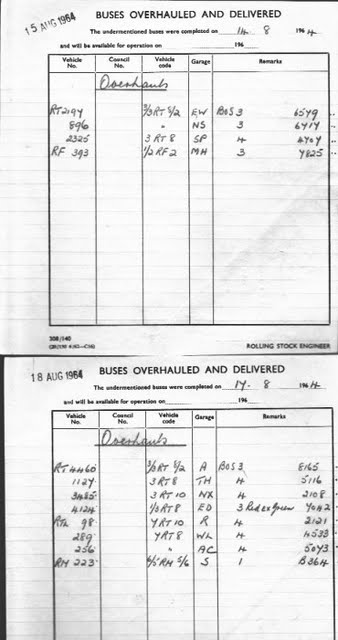 15 AUG 1964
BUSES OVERHAULED AND DELIVERED
The undermentioned buses were completed on 14 . 8 1964
and will be available for operation on 196
Vehicle No. Council No. Vehicle code Garage Remarks
Overhauls
RT2197 2/3 RT 8/2 EW BOS 3 6549
896 " NS 3 6414
2325 3 RT 8 SP 4
RF 393 1/2 RF 2 MH 3 4825
308/140
ROLLING STOCK ENGINEER
18 AUG 1964
BUSES OVERHAULED AND DELIVERED
The undermentioned buses were completed on 17 . 8 1964
and will be available for operation on 196
Vehicle No. Council No. Vehicle code Garage Remarks
Overhauls
RT 4460 RT 8/2 A BOS 3 8165
1127 3 RT 8 TH 4 5116
3485 3 RT 10 NX 4 2108
4124 RT 8 ED 3 Red ex Green 4042
RTL 98 4 RT 10 R 4 2121
289 4 RT 8 WL 4 4533
256 " AC 4 5043
RM 223 RM 5/6 S 1 B364